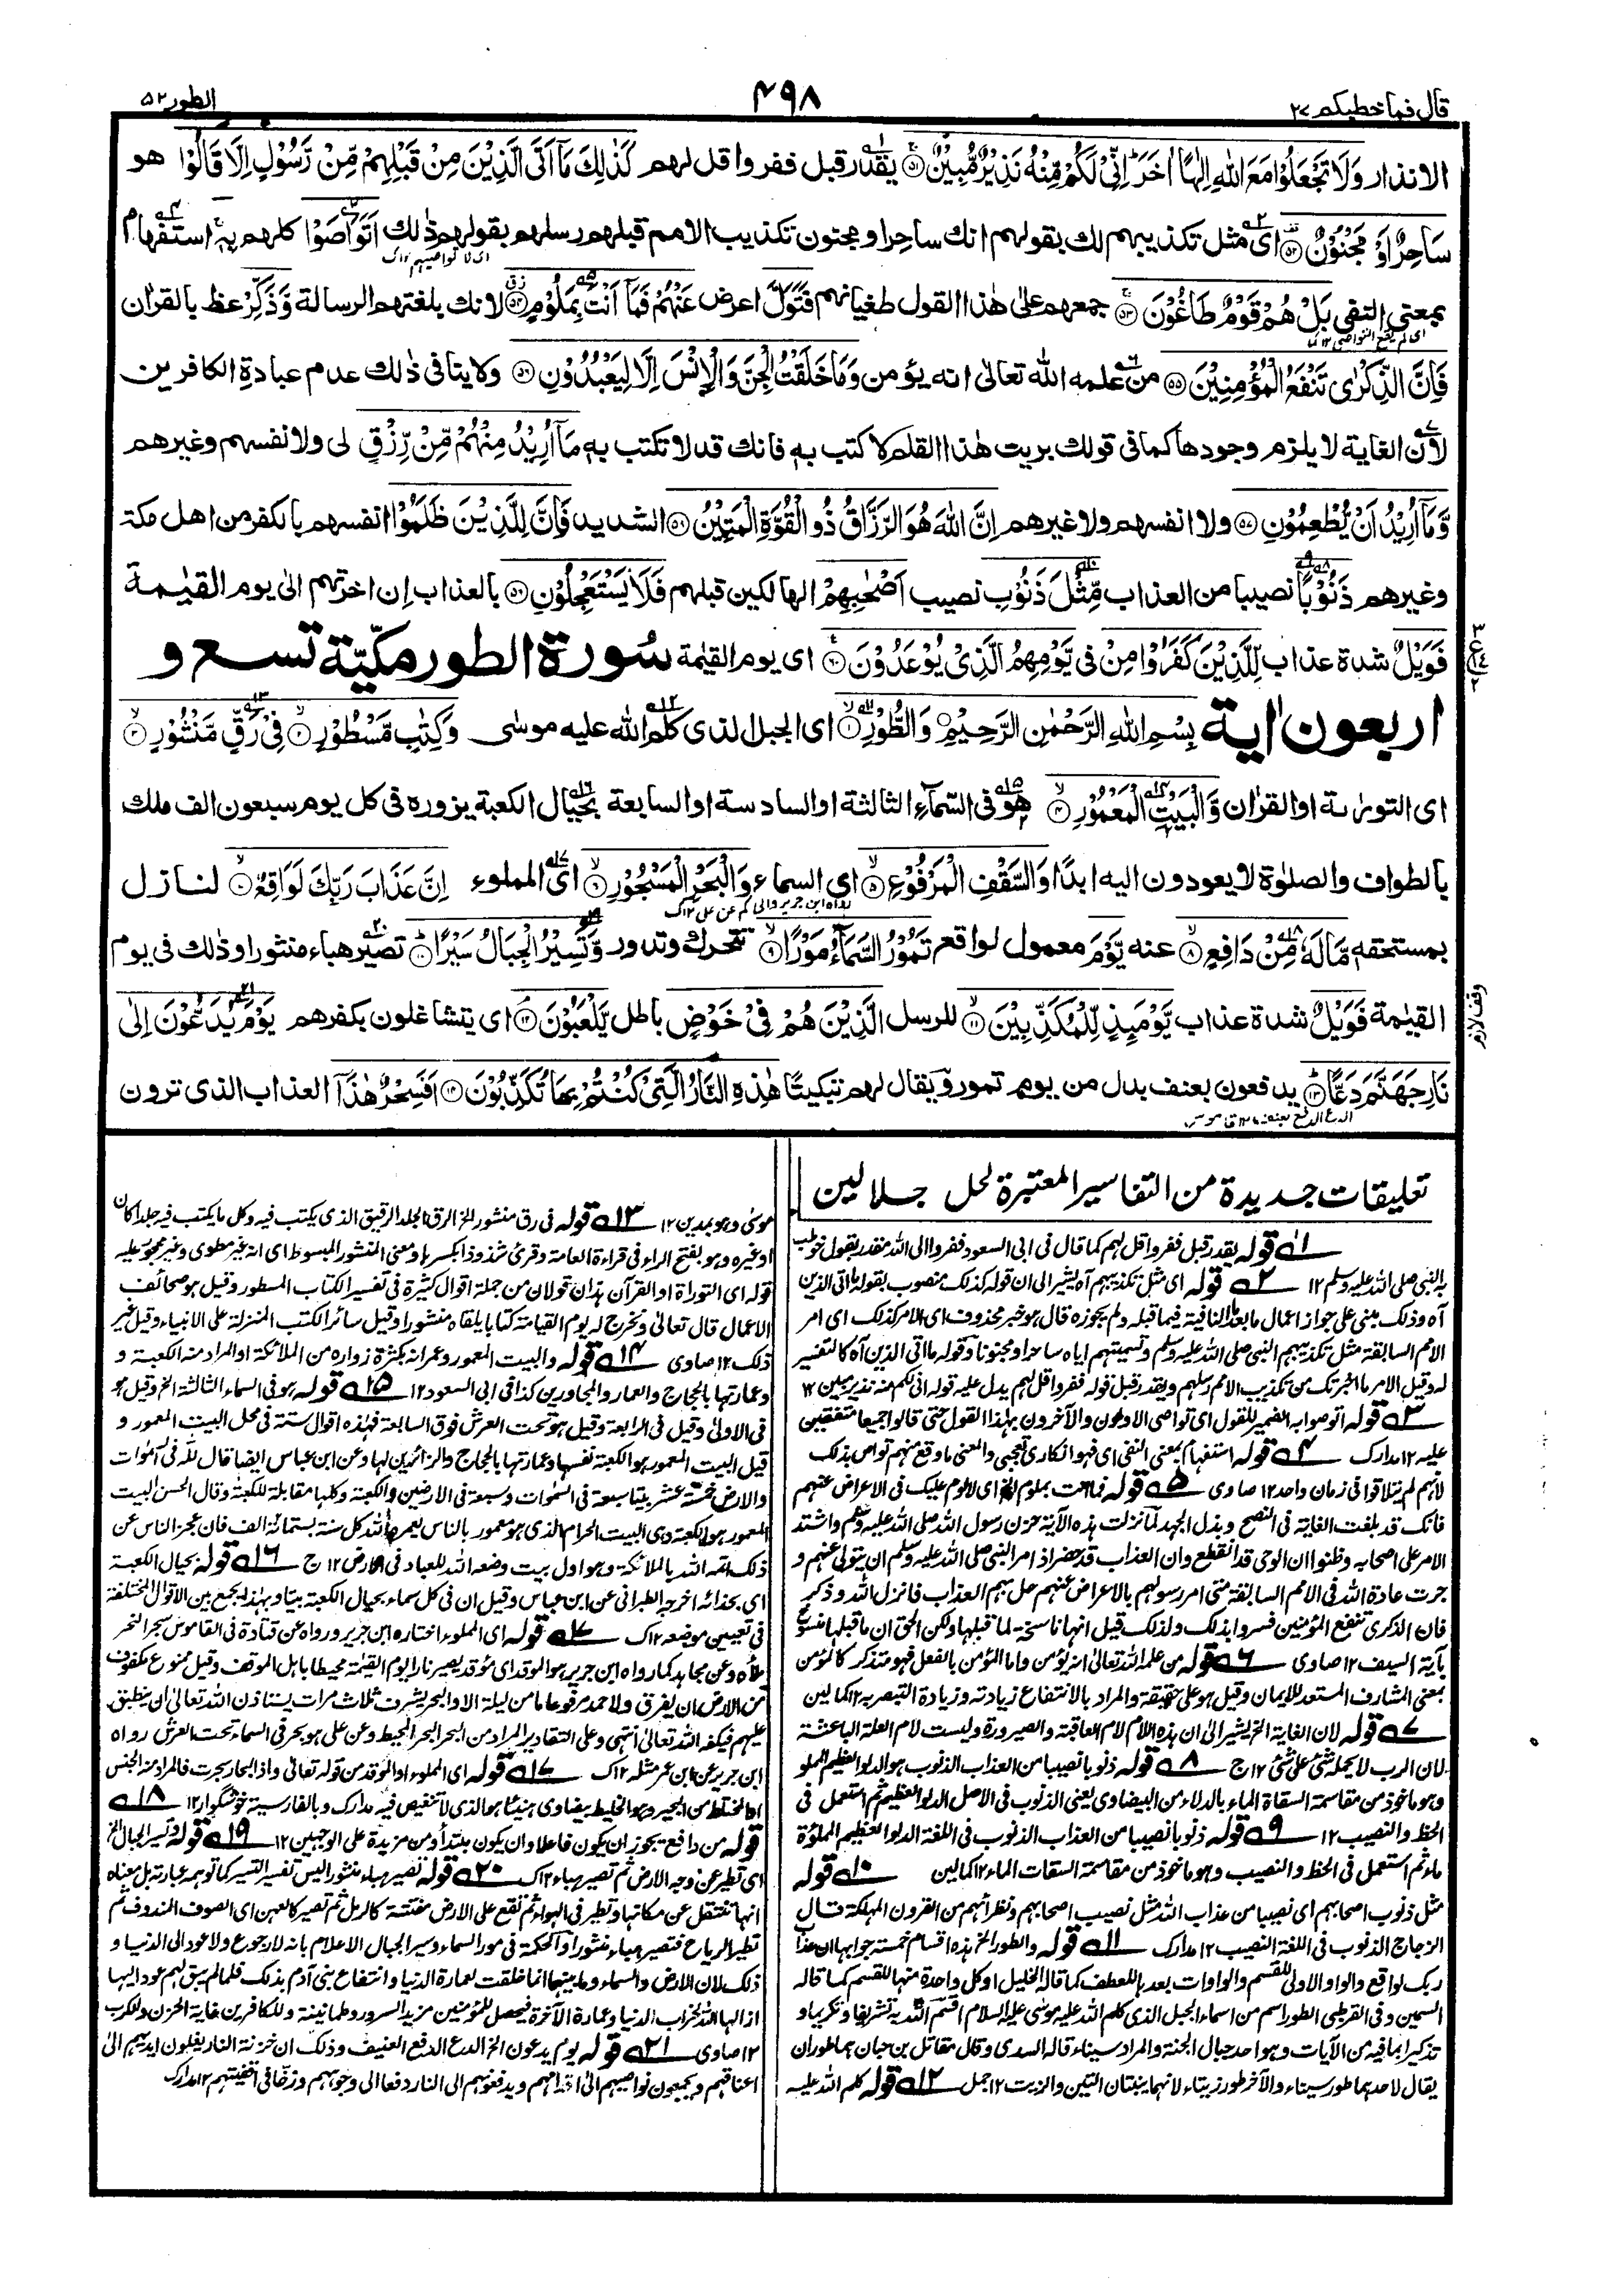 قال فما خطبكم ٢٧
٤٩٨
الطور ٥٢
الانذار وَلَا تَجْعَلُوْا مَعَ اللهِ اِلٰهًا اٰخَرَ اِنِّىْ لَكُمْ مِّنْهُ نَذِيْرٌ مُّبِيْنٌ ۝٥١ يقدر قبل ففروا قل لهم كَذٰلِكَ مَآ اَتَى الَّذِيْنَ مِنْ قَبْلِهِمْ مِّنْ رَّسُوْلٍ اِلَّا قَالُوْا هو
سَاحِرٌ اَوْ مَجْنُوْنٌ ۝٥٢ اى مثل تكذيبهم لك بقولهم انك ساحر او مجنون تكذيب الامم قبلهم رسلهم بقولهم ذٰلك اَتَوَاصَوْا كلهم بِهٖ استفهام
بمعنى النفى بَلْ هُمْ قَوْمٌ طَاغُوْنَ ۝٥٣ جمعهم على هٰذا القول طغيانهم فَتَوَلَّ اعرض عَنْهُمْ فَمَآ اَنْتَ بِمَلُوْمٍ ۝٥٤ لانك بلغتهم الرسالة وَّذَكِّرْ عظ بالقران
فَاِنَّ الذِّكْرٰى تَنْفَعُ الْمُؤْمِنِيْنَ ۝٥٥ من علمه الله تعالى انه يؤمن وَمَا خَلَقْتُ الْجِنَّ وَالْاِنْسَ اِلَّا لِيَعْبُدُوْنِ ۝٥٦ ولا ينافى ذٰلك عدم عبادة الكافرين
لان الغاية لا يلزم وجودها كما فى قولك بريت هٰذا القلم لاكتب به فانك قد لا تكتب به مَآ اُرِيْدُ مِنْهُمْ مِّنْ رِّزْقٍ لى ولانفسهم وغيرهم
وَّمَآ اُرِيْدُ اَنْ يُّطْعِمُوْنِ ۝٥٧ ولا انفسهم ولا غيرهم اِنَّ اللهَ هُوَ الرَّزَّاقُ ذُو الْقُوَّةِ الْمَتِيْنُ ۝٥٨ الشديد فَاِنَّ لِلَّذِيْنَ ظَلَمُوْا انفسهم بالكفر من اهل مكة
وغيرهم ذَنُوْبًا نصيبا من العذاب مِّثْلَ ذَنُوْبِ نصيب اَصْحٰبِهِمْ الهالكين قبلهم فَلَا يَسْتَعْجِلُوْنِ ۝٥٩ بالعذاب ان اخرتهم الى يوم القيٰمة
فَوَيْلٌ شدة عذاب لِّلَّذِيْنَ كَفَرُوْا مِنْ فى يَّوْمِهِمُ الَّذِىْ يُوْعَدُوْنَ ۝٦٠ اى يوم القيٰمة سُورة الطور مكيّة تسع و
اربعون اية بِسْمِ اللهِ الرَّحْمٰنِ الرَّحِيْمِ ۝ وَالطُّوْرِ ۝١ اى الجبل الذى كلم الله عليه موسٰى وَكِتٰبٍ مَّسْطُوْرٍ ۝٢ فِىْ رَقٍّ مَّنْشُوْرٍ ۝٣
اى التورٰىة او القرٰان وَّالْبَيْتِ الْمَعْمُوْرِ ۝٤ هو فى السماء الثالثة او السادسة او السابعة بحيال الكعبة يزوره فى كل يوم سبعون الف ملك
بالطواف والصلوٰة لا يعودون اليه ابدًا وَالسَّقْفِ الْمَرْفُوْعِ ۝٥ اى السماء وَالْبَحْرِ الْمَسْجُوْرِ ۝٦ اى المملوء اِنَّ عَذَابَ رَبِّكَ لَوَاقِعٌ ۝٧ لنازل
بمستحقه مَّالَهٗ مِنْ دَافِعٍ ۝٨ عنه يَّوْمَ معمول لواقع تَمُوْرُ السَّمَآءُ مَوْرًا ۝٩ تتحرك وتدور وَّتَسِيْرُ الْجِبَالُ سَيْرًا ۝١٠ تصير هباء منثورا وذلك فى يوم
القيٰمة فَوَيْلٌ شدة عذاب يَّوْمَئِذٍ لِّلْمُكَذِّبِيْنَ ۝١١ للرسل الَّذِيْنَ هُمْ فِىْ خَوْضٍ باطل يَّلْعَبُوْنَ ۝١٢ اى يتشاغلون بكفرهم يَوْمَ يُدَعُّوْنَ اِلٰى
نَارِ جَهَنَّمَ دَعًّا ۝١٣ يدفعون بعنف بدل من يوم تمور ويقال لهم تبكيتا هٰذِهِ النَّارُ الَّتِىْ كُنْتُمْ بِهَا تُكَذِّبُوْنَ ۝١٤ اَفَسِحْرٌ هٰذَآ العذاب الذى ترون
وقف لازم
تعليقات جديدة من التفاسير المعتبرة لحل جلالين
١ قوله يقدر قبل ففروا قل لهم كما قال فى ابى السعود ففروا الى الله مقدر بقول خوطب
به النبى صلى الله عليه وسلم ١٢ ٢ قوله اى مثل تكذيبهم آه يشير الى ان قوله كذلك منصوب بقوله ما اتى الذين
آه وذلك مبنى على جواز اعمال ما بعد ما النافية فيما قبله ولم يجوزه قال هو خبر محذوف اى الامر كذلك اى امر
الامم السابقة مثل تكذيبهم النبى صلى الله عليه وسلم وتسميتهم اياه ساحرا ومجنونا وقوله ما اتى الذين آه كالتفسير
له وقيل الامر ما اخبرتك من تكذيب الامم رسلهم ويقدر قبل قوله ففروا قل لهم يدل عليه قوله انى لكم منه نذير مبين ١٢
٣ قوله اتواصوا به الضمير للقول اى تواصى الاولون والآخرون بهذا القول حتى قالوا جميعا متفقين
عليه ١٢ مدارك ٤ قوله استفهام بمعنى النفى اى فهو انكارى تعجبى والمعنى ما وقع منهم تواص بذلك
لانهم لم يتلاقوا فى زمان واحد ١٢ صاوى ٥ قوله فما انت بملوم الخ اى لا لوم عليك فى الاعراض عنهم
فانك قد بلغت الغاية فى النصح وبذل الجهد لما نزلت هذه الآية حزن رسول الله صلى الله عليه وسلم واشتد
الامر على اصحابه وظنوا ان الوحى قد انقطع وان العذاب قد حضر اذ امر النبى صلى الله عليه وسلم ان يتولى عنهم و
جرت عادة الله فى الامم السابقة متى امر رسولهم بالاعراض عنهم حل بهم العذاب فانزل الله وذكر
فان الذكرى تنفع المؤمنين فسروا بذلك ولذلك قيل انها ناسخة لما قبلها ولكن الحق ان ما قبلها منسوخ
بآية السيف ١٢ صاوى ٦ قوله من علمه الله تعالى انه يؤمن واما المؤمن بالفعل فهو متذكر كالمؤمن
بمعنى المشارف المستعد للايمان وقيل هو على حقيقة والمراد بالانتفاع زيادته وزيادة التبصر به ١٢ كمالين
٧ قوله لان الغاية الخ يشير الى ان هذه اللام لام العاقبة والصيرورة وليست لام العلة الباعثة
لان الرب لا يحمله شئ على شئ ١٢ ج ٨ قوله ذنوبا نصيبا من العذاب الذنوب هو الدلو العظيم المملو
وهو ماخوذ من مقاسمة السقاة الماء بالدلاء من البيضاوى يعنى الذنوب فى الاصل الدلو العظيم ثم استعمل فى
الحظ والنصيب ١٢ ٩ قوله ذنوبا نصيبا من العذاب الذنوب فى اللغة الدلو العظيم المملوة
ماء ثم استعمل فى الحظ والنصيب وهو ماخوذ من مقاسمة السقات الماء ١٢ كمالين ١٠ قوله
مثل ذنوب اصحابهم اى نصيبا من عذاب الله مثل نصيب اصحابهم ونظرائهم من القرون المهلكة قال
الزجاج الذنوب فى اللغة النصيب ١٢ مدارك ١١ قوله والطور الخ هذه اقسام خمسة جوابها ان عذاب
ربك لواقع والواو الاولى للقسم والواوات بعدها للعطف كما قاله الخليل او كل واحدة منها للقسم كما قاله
السمين وفى القرطبى الطور اسم من اسماء الجبل الذى كلم الله عليه موسى عليه السلام اقسم الله به تشريفا وتكريما و
تذكيرا بما فيه من الآيات وهو احد جبال الجنة والمراد سيناء قاله السدى وقال مقاتل بن حبان هما طوران
يقال لاحدهما طور سيناء والآخر طور زيتاء لانهما ينبتان التين والزيت ١٢ جمل ١٢ قوله كلم الله عليه
موسى وهو بمدين ١٢ ١٣ قوله فى رق منشور الخ الرق الجلد الرقيق الذى يكتب فيه وكل ما يكتب فيه جلدا كان
او غيره وهو بفتح الراء فى قراءة العامة وقرئ شذوذا بكسرها ومعنى المنشور المبسوط اى انه غير مطوى وغير محجور عليه
قوله اى التوراة او القرآن هذان قولان من جملة اقوال كثيرة فى تفسير الكتاب المسطور وقيل هو صحائف
الاعمال قال تعالى ونخرج له يوم القيامة كتابا يلقاه منشورا وقيل سائر الكتب المنزلة على الانبياء وقيل غير
ذلك ١٢ صاوى ١٤ قوله والبيت المعمور وعمرانه بكثرة زواره من الملائكة او المراد منه الكعبة و
وعمارتها بالحجاج والعمار والمجاورين كذا فى ابى السعود ١٢ ١٥ قوله هو فى السماء الثالثة الخ وقيل هو
فى الاولى وقيل فى الرابعة وقيل هو تحت العرش فوق السابعة فهذه اقوال ستة فى محل البيت المعمور و
قيل البيت المعمور هو الكعبة نفسها وعمارتها بالحجاج والزائرين لها وعن ابن عباس ايضا قال لله فى السموات
والارض خمسة عشر بيتا سبعة فى السموات وسبعة فى الارضين والكعبة وكلها مقابلة للكعبة وقال الحسن البيت
المعمور هو الكعبة وهى البيت الحرام الذى هو معمور بالناس يعمره الله كل سنة بستمائة الف فان عجز الناس عن
ذلك اتمه الله بالملائكة وهو اول بيت وضعه الله للعباد فى الارض ١٢ ج ١٦ قوله بحيال الكعبة
اى بحذائه اخرجه الطبرانى عن ابن عباس وقيل ان فى كل سماء بحيال الكعبة بيتا وبهذا يجمع بين الاقوال المختلفة
فى تعيين موضعه ١٢ ك ١٧ قوله اى المملوء اختاره ابن جرير ورواه عن قتادة فى القاموس سجر النحر
ملأه وعن مجاهد كما رواه ابن جرير هو الموقد اى موقد يصير نارا يوم القيٰمة محيطا باهل الموقف وقيل ممنوع مكفوف
من الارض ان يغرق ولاحمد مرفوعا ما من ليلة الا والبحر يشرف ثلاث مرات يستاذن الله تعالى ان ينطبق
عليهم فيكفه الله تعالى انتهى وعلى التقادير المراد من البحر البحر المحيط وعن على هو بحر فى السماء تحت العرش رواه
ابن جرير عن ابن عمر مثله ١٢ ك ١٧ قوله اى المملوء او الموقد من قوله تعالى واذا البحار سجرت فالمراد منه الجنس
او المختلط من السجير وهو الخليط بيضاوى هنيئا هو الذى لا تنغيص فيه مدارك وبالفارسية خوشگوار ١٢ ١٨
قوله من دافع يجوز ان يكون فاعلا وان يكون مبتدأ ومن مزيدة على الوجهين ١٢ ١٩ قوله وتسير الجبال الخ
اى تطير عن وجه الارض ثم تصير هباء ١٢ ك ٢٠ قوله تصير هباء منثورا ليس تفسير التسير كما توهمه عبارته بل معناه
انها تنتقل عن مكانها وتطير فى الهواء ثم تقع على الارض مفتتة كالرمل ثم تصير كالعهن اى الصوف المندوف ثم
تطيرها الرياح فتصير هباء منثورا والحكمة فى مور السماء وسير الجبال الاعلام بانه لا رجوع ولا عود الى الدنيا و
ذلك لان الارض والسماء وما بينهما انما خلقت لعمارة الدنيا وانتفاع بنى آدم بذلك فلما لم يبق لهم عود اليها
ازالها الله لخراب الدنيا وعمارة الآخرة فيحصل للمؤمنين مزيد السرور وطمانينة وللكافرين غاية الحزن والكرب
١٢ صاوى ٢١ قوله يوم يدعون الخ الدع الدفع العنيف وذلك ان خزنة النار يغلون ايديهم الى
اعناقهم ويجمعون نواصيهم الى اقدامهم ويدفعونهم الى النار دفعا الى وجوههم وزخا فى اقفيتهم ١٢ مدارك